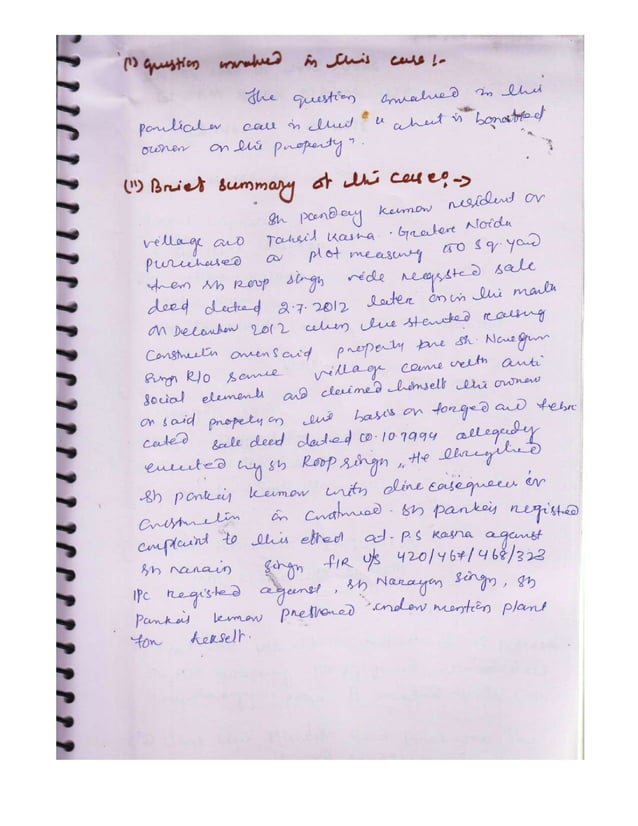 (i) Question involved in this case :-
The question involved in this
particular case is that "what is bonafied
owner on the property".
(ii) Brief summary of this case :- →
Sh pankaj kumar resident of
village and Tahsil Kasna. Greater Noida
purchased a plot measuring 200 sq. yard
from sh Roop singh vide registed sale
deed dated 2.7.2012 later on in the month
on December 2012 when he started raising
construction on said property one sh. Narayan
Singh R/o same village came with anti
social elements and claimed himself the owner
on said property on the basis on forged and febri
cated sale deed dated 10.10.1994 allegedly
executed by sh Roop singh, He threatened
sh pankaj kumar with dire consequences if
construction is continued. sh pankaj registed
complaint to this effect at P.S Kasna against
sh narain singh FIR U/s 420/467/468/323
IPC registed against, sh Narayan Singh, sh
Pankaj kumar under mention
for